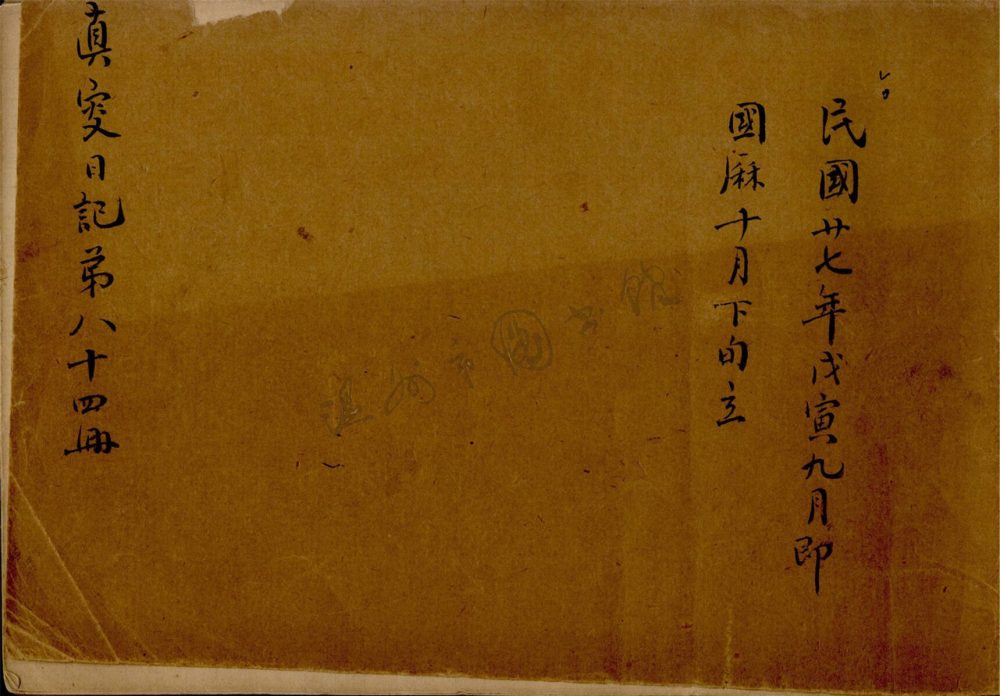 民國廿七年戊寅九月即
國厤十月下旬立
真叜日記第八十四冊
溫州市圖书館